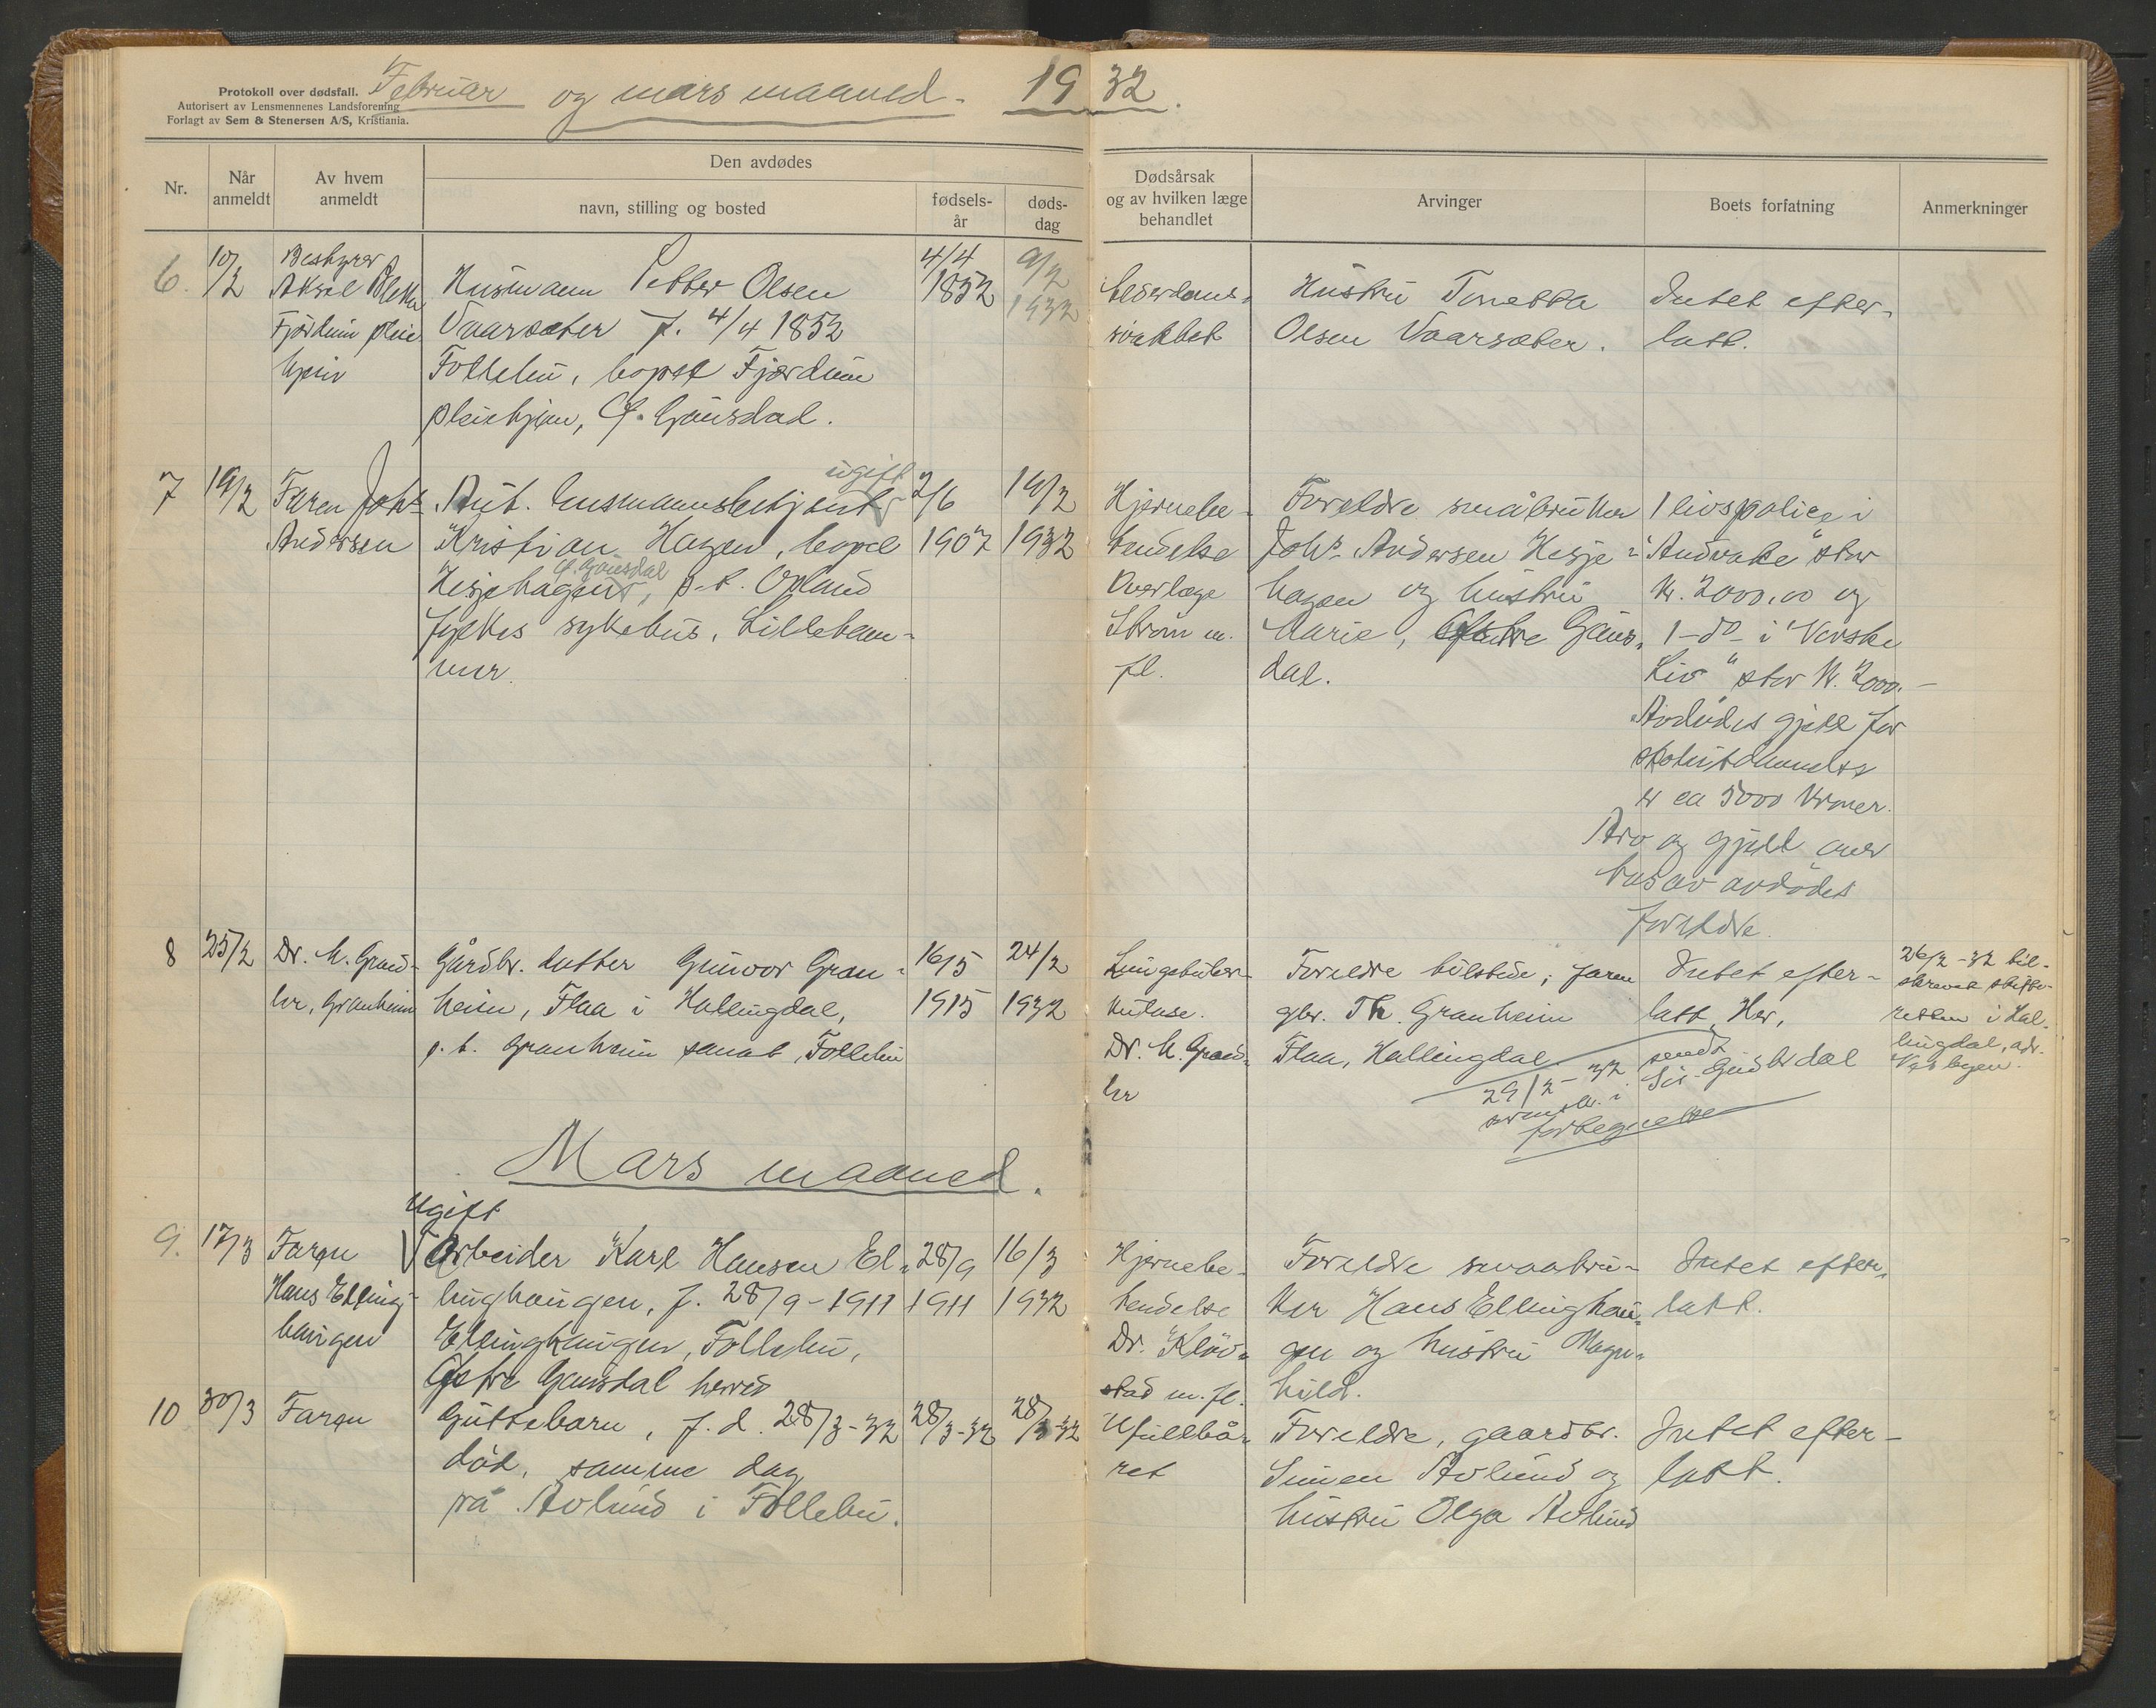 Protokoll over dødsfall.
Autorisert av Lensmennenes Landsforening
Forlagt av Sem & Stenersen A/S, Kristiania.
Februar og mars maaned. 1932.
Nr.
Når anmeldt
Av hvem anmeldt
Den avdødes
navn, stilling og bosted
fødsels-år
døds-dag
Dødsårsak og av hvilken læge behandlet
Arvinger
Boets forfatning
Anmerkninger
6.
10/2
Bestyrer
Aksel
Fjørdum pleie
hjem
Husmann Petter Olsen
Vaarsæter f. 4/4 1852
Follebu, bopel Fjørdum
pleiehjem, Ø. Gausdal.
4/4
1852
9/2
1932
Alderdoms-
svakhet
Hustru Tonetta
Olsen Vaarsæter.
Intet efter-
latt.
7
19/2
Faren Johs.
Andersen
ugift
Aut. lensmannsbetjent
Kristian Hagen, bopel
Ø. Gausdal
Kisjehagen, p.t. Opland
fylkes sykehus, Lilleham-
mer.
2/6
1907
19/2
1932
Hjernebe-
tendelse
Overlæge
Strøm m.
fl.
Foreldre småbruker
Johs. Andersen Kisje-
hagen og hustru
Marie, Østre Gaus-
dal.
1 livspolice i
"Andvake" stor
kr. 2000,00 og
1 -do- i "Norske
Liv" stor kr. 2000.-
Avdødes gjeld for
skoleutdannelse
er ca 5000 kroner.
Arv og gjeld over
tas av avdødes
foreldre.
8
25/2
Dr. M. Grand-
hr, Granheim
Gårdbr. datter Gunvor Gran-
heim, Flaa i Hallingdal,
p.t. Granheim sanat, Follebu
16/5
1915
24/2
1932
Lungetuber-
kulose.
Dr. M. Grand-
hr
Foreldre tilstede, faren
gbr. Th. Granheim
Flaa, Hallingdal
Intet efter-
latt. Her,
26/2-32 til-
skrevet skifte-
retten i Hal-
lingdal, adr.
Nesbyen.
29/2-32 sendt
sorenskr. i Sør-Gudbrdal
fortegnelse
Mars maaned.
9.
17/3
Faren
Hans Elling-
haugen
Ugift
Arbeider Karl Hansen El-
linghaugen, f. 28/9-1911
Ellinghaugen, Follebu,
Østre Gausdal herred
28/9
1911
16/3
1932
Hjernebe-
tendelse
Dr. Kløv-
stad m. fl.
Foreldre smaabru-
ker Hans Ellinghau-
gen og hustru Magn-
hild.
Intet efter-
latt.
10
30/3
Faren
Guttebarn, f. d. 28/3-32
død, samme dag
på Avlund i Follebu.
28/3-32
28/3-32
Ufullbå-
ret
Foreldre, gaardbr.
Simen Avlund og
hustru Olga Avlund
Intet efter-
latt.